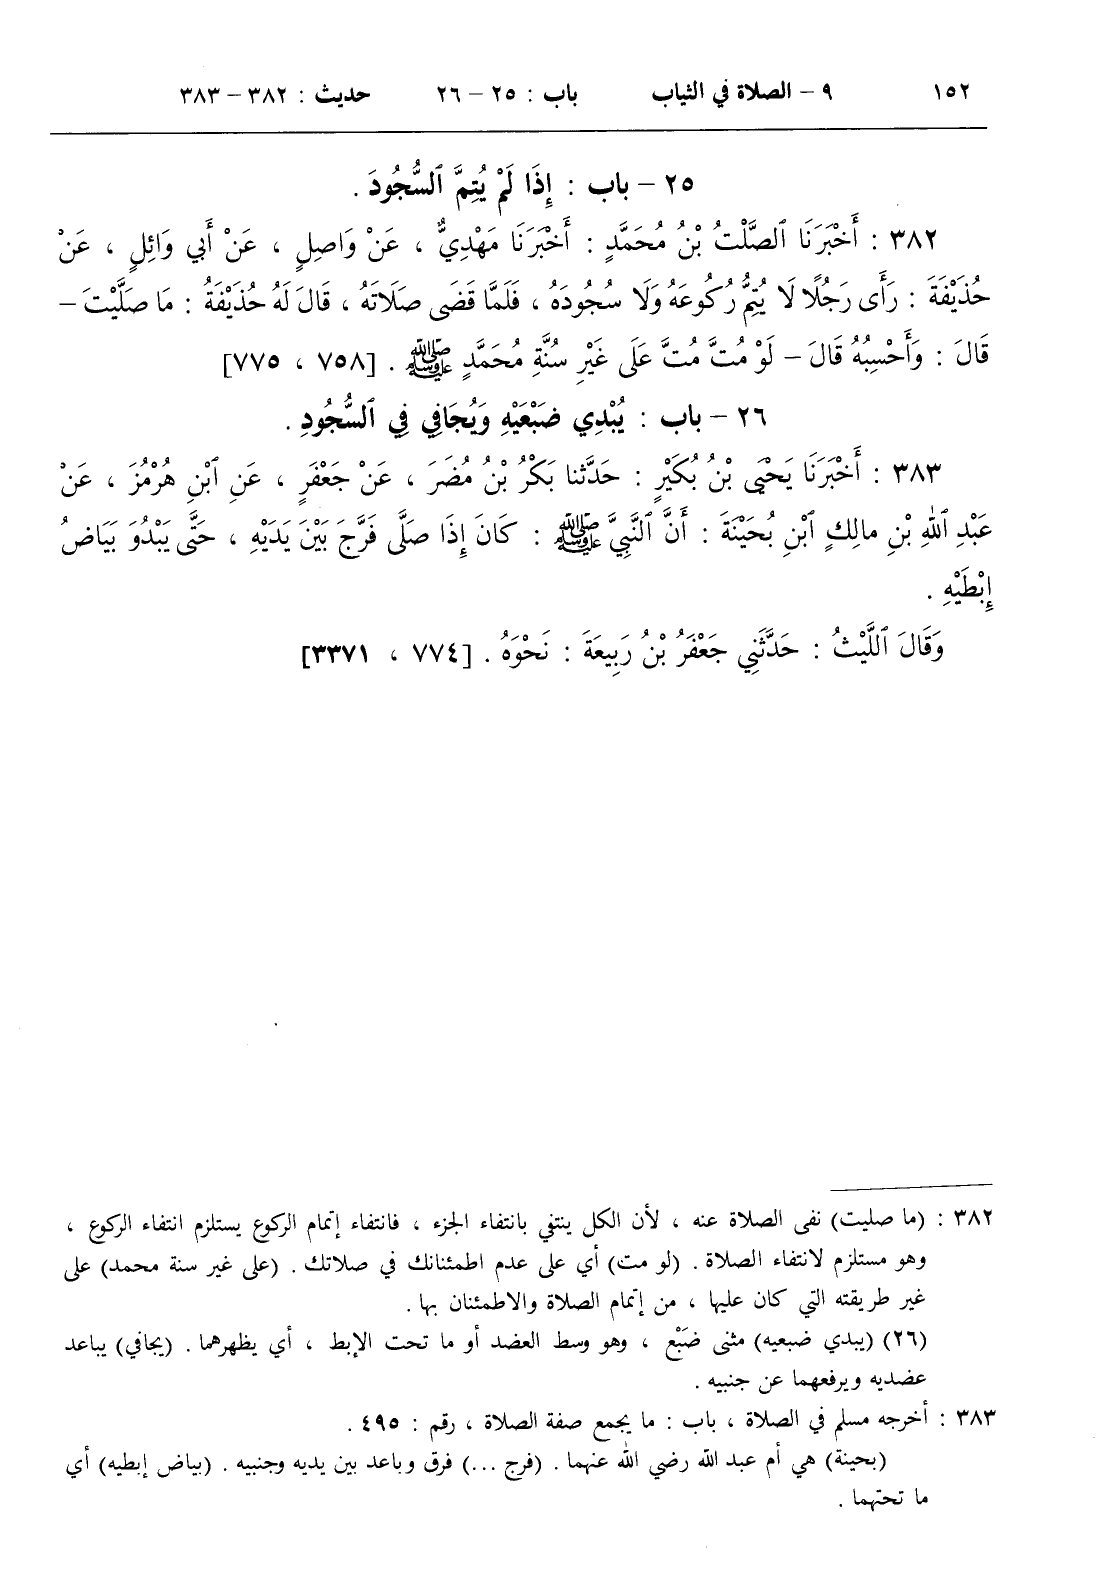 ١٥٢ ٩ – الصلاة في الثياب باب : ٢٥ – ٢٦ حديث : ٣٨٢ – ٣٨٣
٢٥ – باب : إِذَا لَمْ يُتِمَّ ٱلسُّجُودَ .
٣٨٢ : أَخْبَرَنَا ٱلصَّلْتُ بْنُ مُحَمَّدٍ : أَخْبَرَنَا مَهْدِيٌّ ، عَنْ وَاصِلٍ ، عَنْ أَبِي وَائِلٍ ، عَنْ
حُذَيْفَةَ : رَأَى رَجُلًا لَا يُتِمُّ رُكُوعَهُ وَلَا سُجُودَهُ ، فَلَمَّا قَضَى صَلَاتَهُ ، قَالَ لَهُ حُذَيْفَةُ : مَا صَلَّيْتَ –
قَالَ : وَأَحْسِبُهُ قَالَ – لَوْ مُتَّ مُتَّ عَلَى غَيْرِ سُنَّةِ مُحَمَّدٍ ﷺ . [٧٥٨ ، ٧٧٥]
٢٦ – باب : يُبْدِي ضَبْعَيْهِ وَيُجَافِي فِي ٱلسُّجُودِ .
٣٨٣ : أَخْبَرَنَا يَحْيَى بْنُ بُكَيْرٍ : حَدَّثنا بَكْرُ بْنُ مُضَرَ ، عَنْ جَعْفَرٍ ، عَنِ ٱبْنِ هُرْمُزَ ، عَنْ
عَبْدِ ٱللهِ بْنِ مالِكٍ ٱبْنِ بُحَيْنَةَ : أَنَّ ٱلنَّبِيَّ ﷺ : كَانَ إِذَا صَلَّى فَرَّجَ بَيْنَ يَدَيْهِ ، حَتَّى يَبْدُوَ بَيَاضُ
إِبْطَيْهِ .
وَقَالَ ٱللَّيْثُ : حَدَّثَنِي جَعْفَرُ بْنُ رَبِيعَةَ : نَحْوَهُ . [٧٧٤ ، ٣٣٧١]
٣٨٢ : (ما صليت) نفى الصلاة عنه ، لأن الكل ينتفي بانتفاء الجزء ، فانتفاء إتمام الركوع يستلزم انتفاء الركوع ،
وهو مستلزم لانتفاء الصلاة . (لو مت) أي على عدم اطمئنانك في صلاتك . (على غير سنة محمد) على
غير طريقته التي كان عليها ، من إتمام الصلاة والاطمئنان بها .
(٢٦) (يبدي ضبعيه) مثنى ضَبْع ، وهو وسط العضد أو ما تحت الإبط ، أي يظهرهما . (يجافي) يباعد
عضديه ويرفعهما عن جنبيه .
٣٨٣ : أخرجه مسلم في الصلاة ، باب : ما يجمع صفة الصلاة ، رقم : ٤٩٥ .
(بحينة) هي أم عبد الله رضي الله عنهما . (فرج ...) فرق وباعد بين يديه وجنبيه . (بياض إبطيه) أي
ما تحتهما .